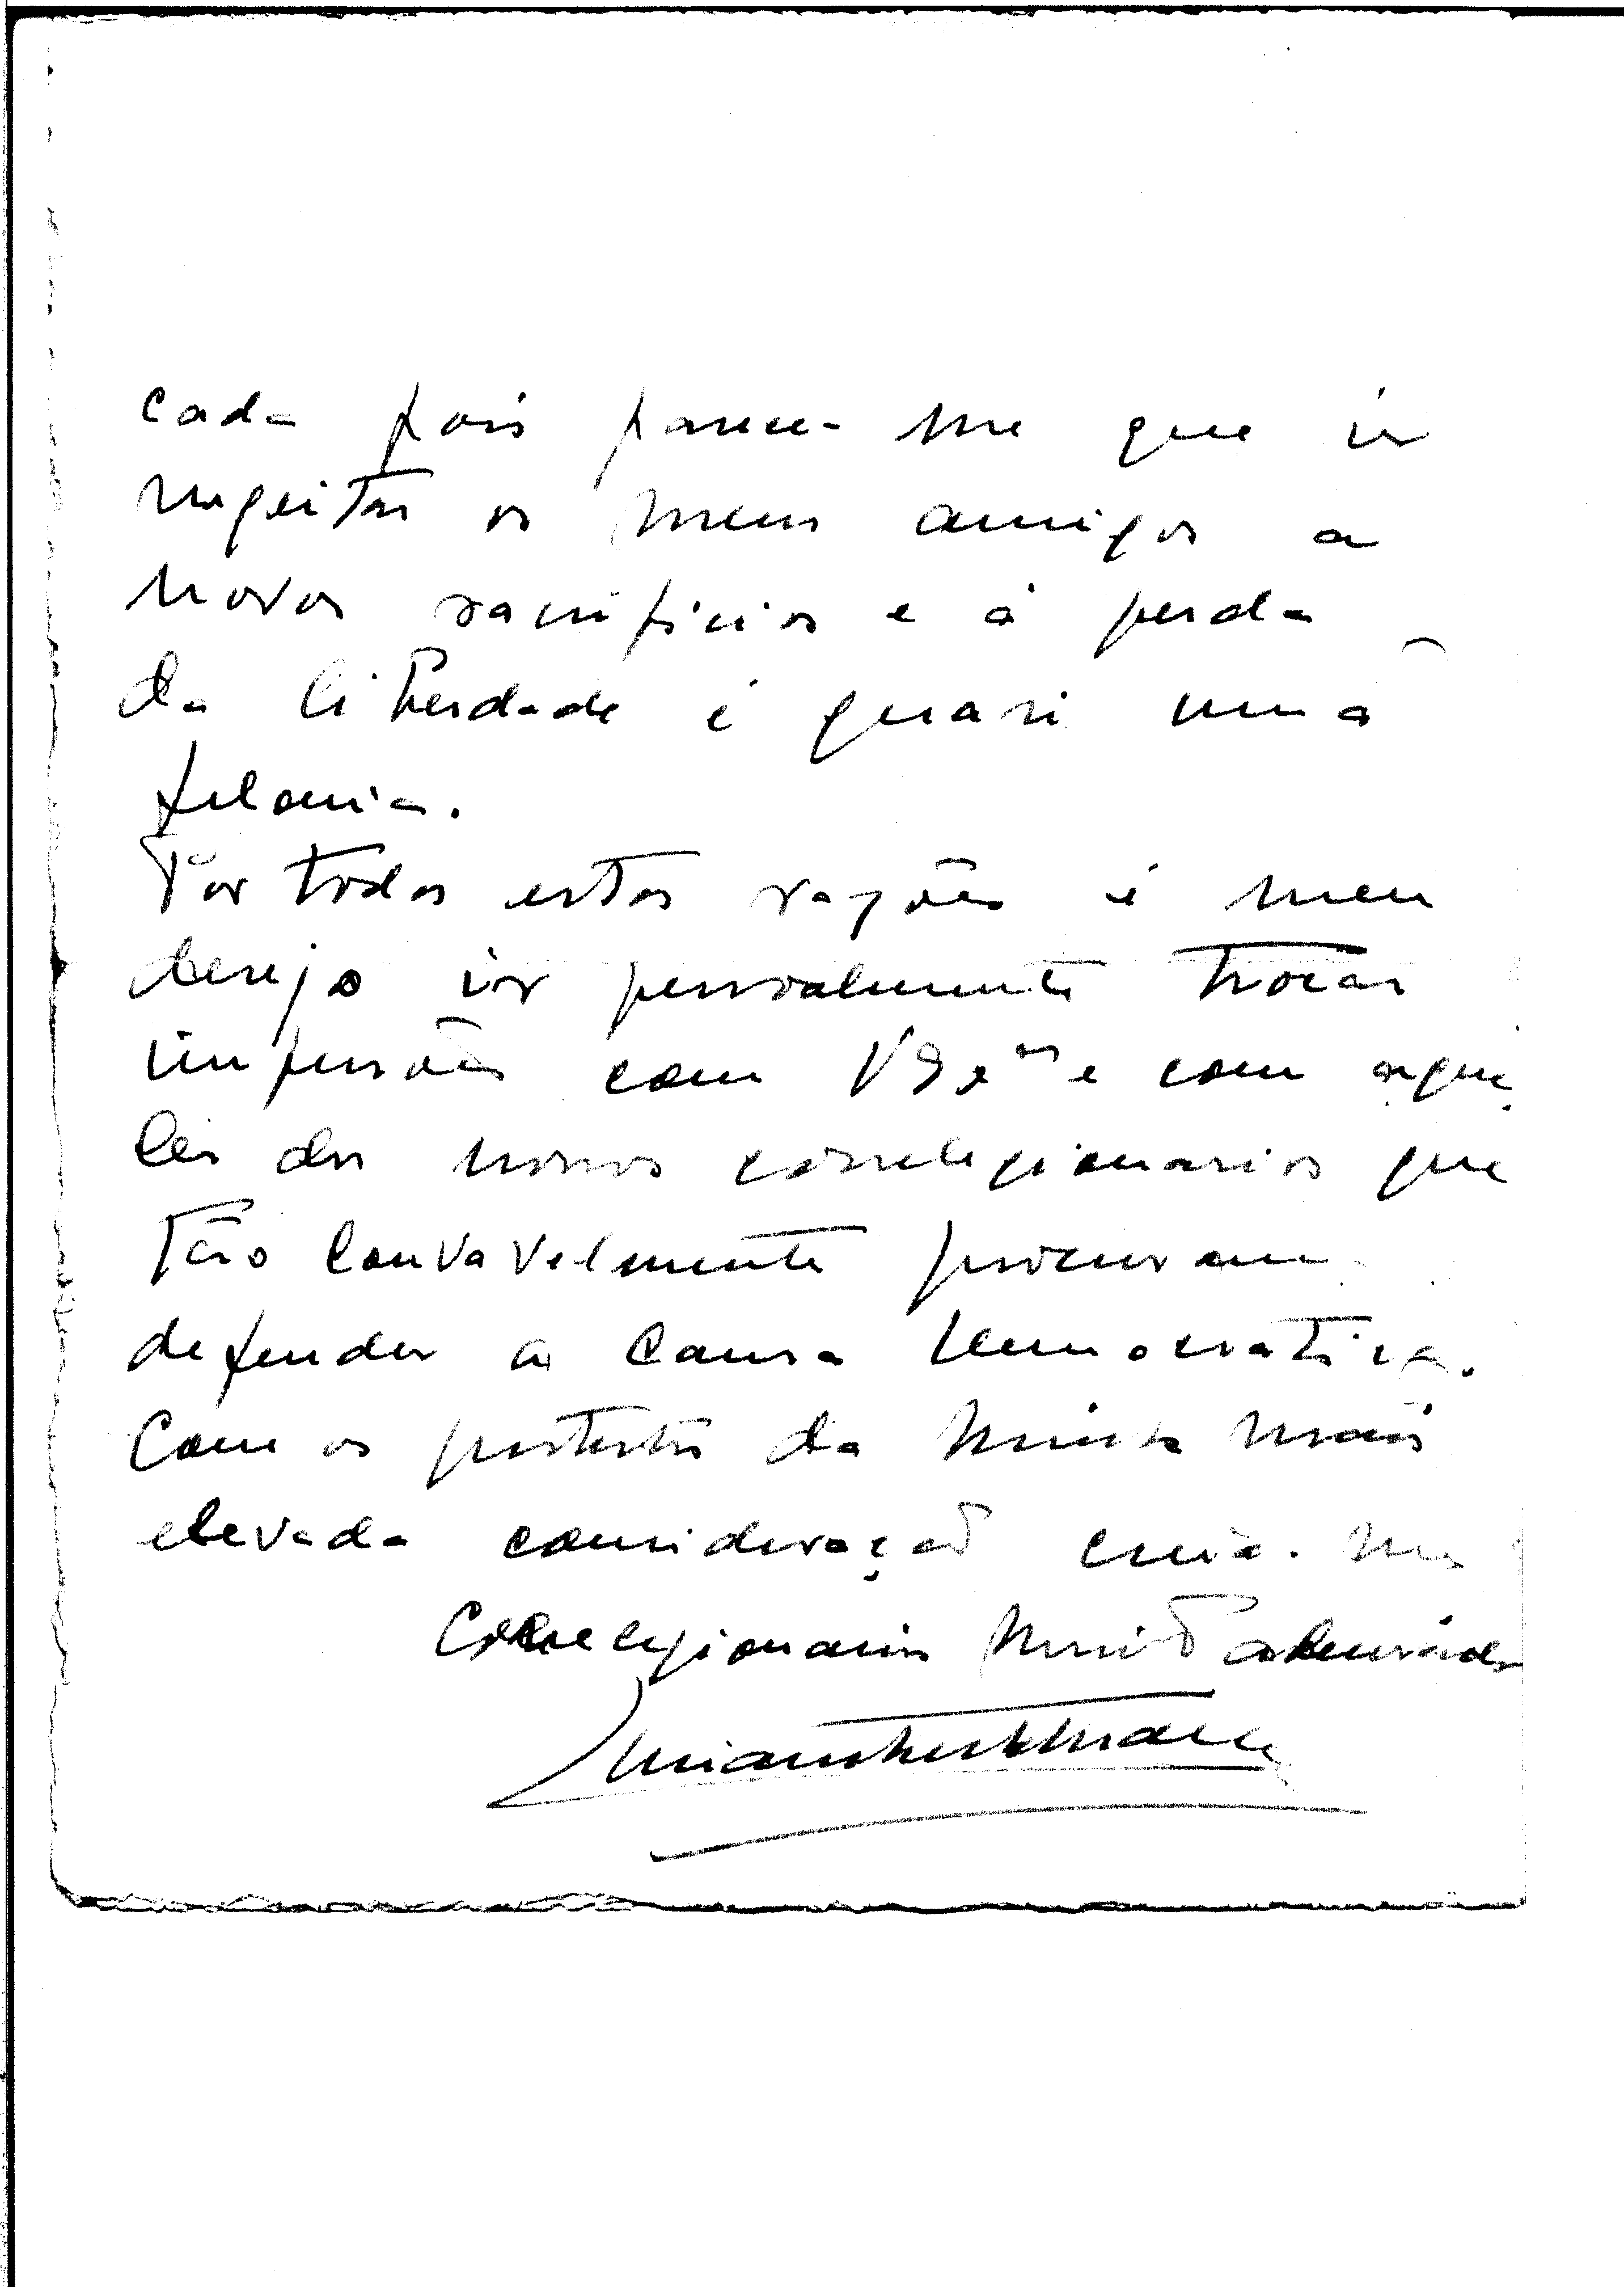 cada pois parece-me que ir
sugeitar os meus amigos a
novos sacrificios e á perda
da liberdade é quasi uma
felonia.
Por todas estas razões é meu
desejo ir pessoalmente trocar
impressões com V Exas e com aque
les dos nossos correlegionarios que
tão louvavelmente procuram
defender a causa Democratica.
Com os protestos da minha mais
elevada consideração
Correlegionario Muito